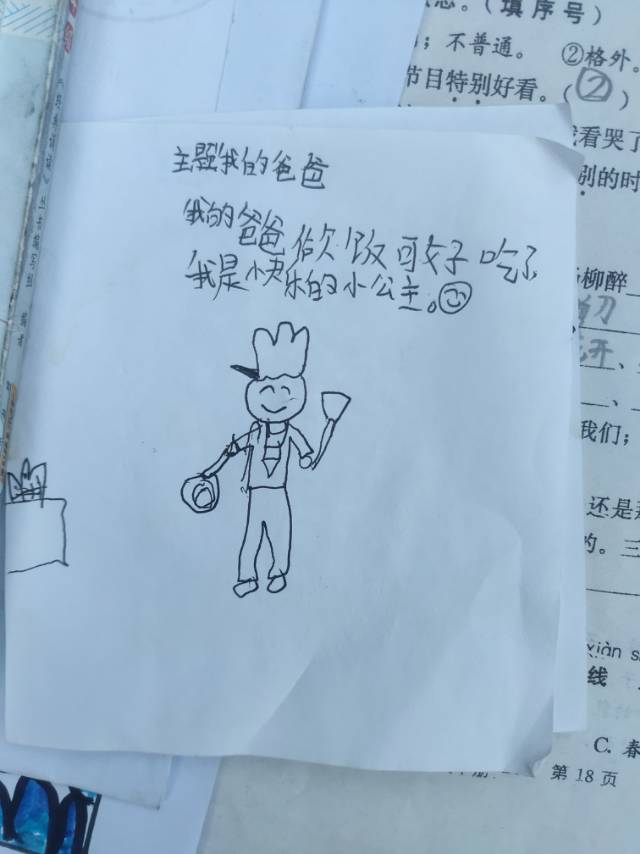 主题:我的爸爸
我的爸爸做饭可好吃了
我是快乐的小公主。
。(填序号)
；不普通。 ②格外。
节目特别好看。(②)
看哭了
别的时
柳醉
开
我们；
还是
的。三
xiàn s
线
C. 春
第 18 页
丛书编写组 编著